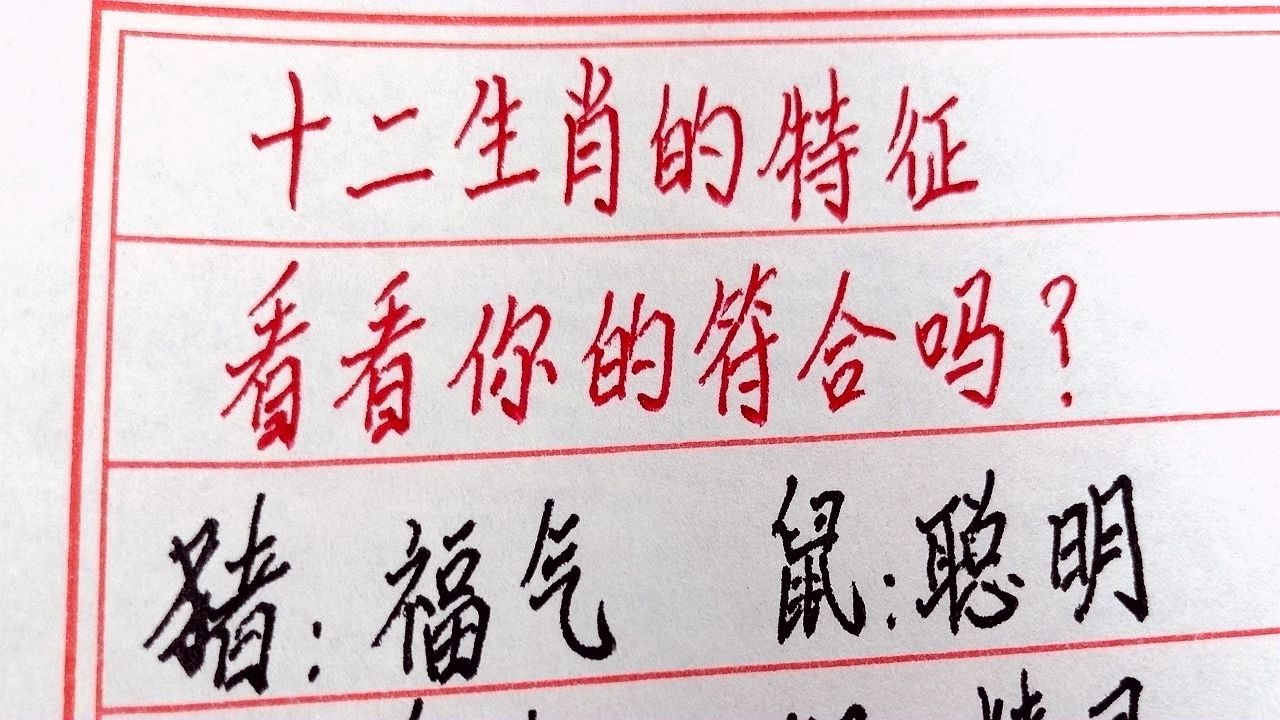 十二生肖的特征
看看你的符合吗?
猪:福气 鼠:聪明